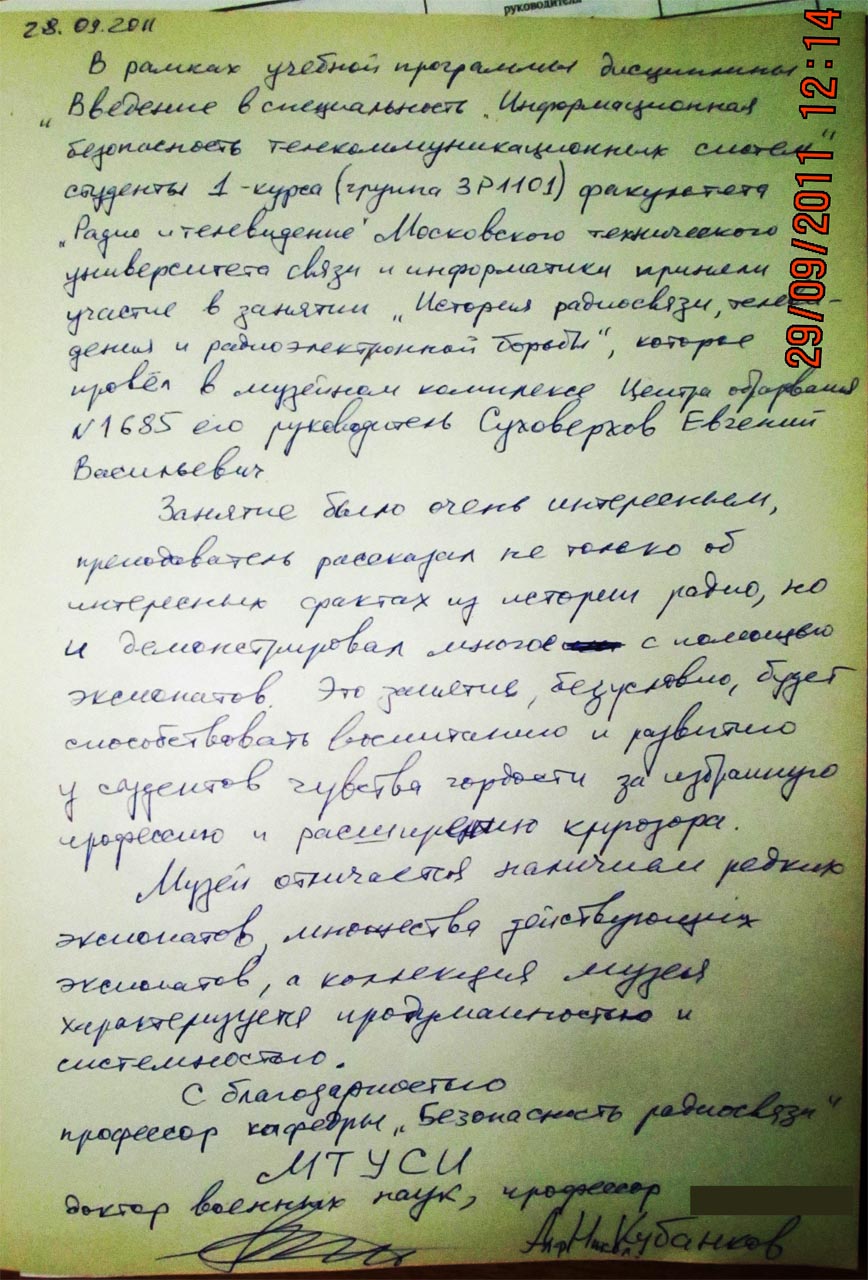 руководителя
28.09.2011
29/09/2011 12:14
В рамках учебной программы дисциплины
„Введение в специальность „Информационная
безопасность телекоммуникационных систем"
студенты 1-курса (группа ЗР1101) факультета
„Радио и телевидение" Московского технического
университета связи и информатики приняли
участие в занятии „История радиосвязи, телеви-
дения и радиоэлектронной борьбы", которое
провёл в музейном комплексе Центра образования
№1685 его руководитель Суховерхов Евгений
Васильевич
Занятие было очень интересным,
преподаватель рассказал не только об
интересных фактах из истории радио, но
и демонстрировал многое с помощью
экспонатов. Это занятие, безусловно, будет
способствовать воспитанию и развитию
у студентов чувства гордости за избранную
профессию и расширению кругозора.
Музей отличается наличием редких
экспонатов, множества действующих
экспонатов, а коллекция музея
характеризуется продуманностью и
системностью.
С благодарностью
профессор кафедры „Безопасность радиосвязи"
МТУСИ
доктор военных наук, профессор
Кубанков